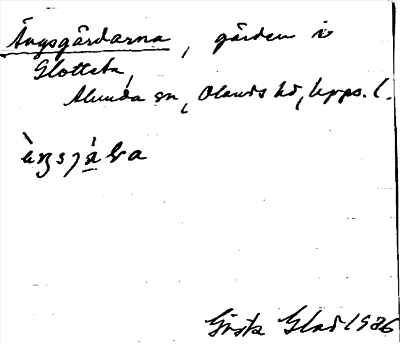 Ängsgärdarna, gärden i
Slotteta,
Alunda sn, Olands hd, Upps. l.
Gösta Glad 1986